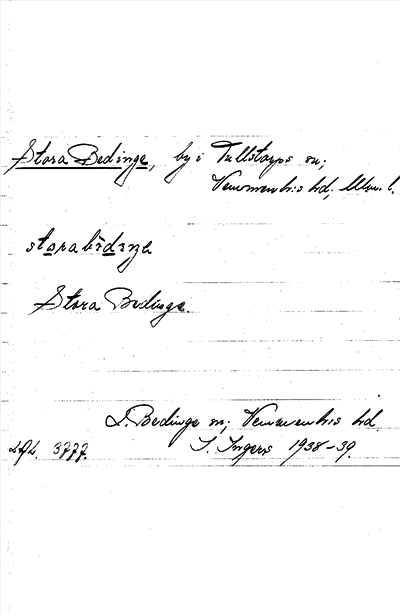 Stora Bedinge, by i Tullstorps sn;
Vemmenhögs hd, Mlm. l.
Stora Bedinge.
L. Bedinge sn; Vemmenhögs hd
3777. I. Ingers 1938-39.